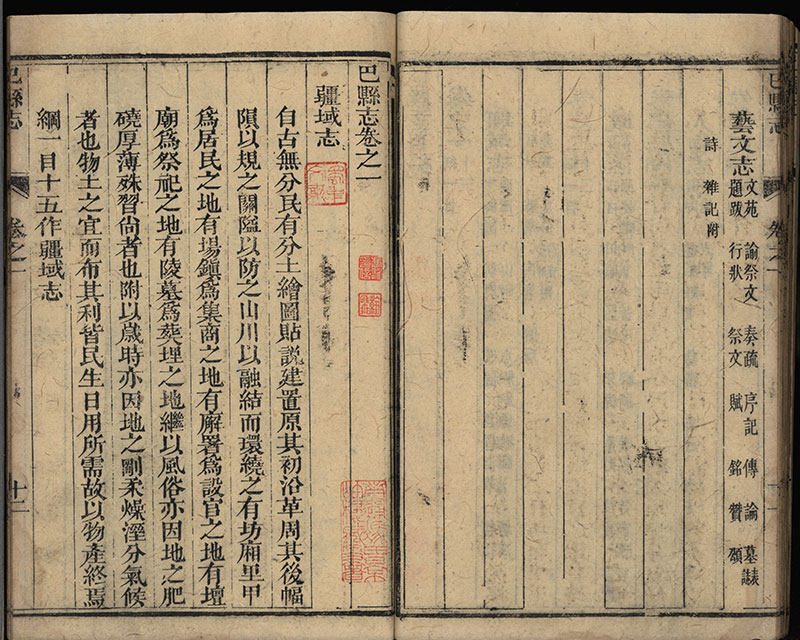 巴縣志 卷之一
藝文志 文苑 諭祭文 奏疏 序記 傳 論
題跋 行狀 祭文 賦 銘 贊 頌
詩 雜記附
巴縣志卷之一
疆域志
自古無分民有分土繪圖貼說建置原其初沿革周其後幅
隕以規之關隘以防之山川以融結而環繞之有坊廂里甲
爲居民之地有場鎮爲集商之地有廨署爲設官之地有壇
廟爲祭祀之地有陵墓爲葬埋之地繼以風俗亦因地之肥
磽厚薄殊習尚者也附以歲時亦因地之剛柔燥溼分氣候
者也物土之宜而布其利皆民生日用所需故以物產終焉
綱一目十五作疆域志
巴縣志 卷之一 十二